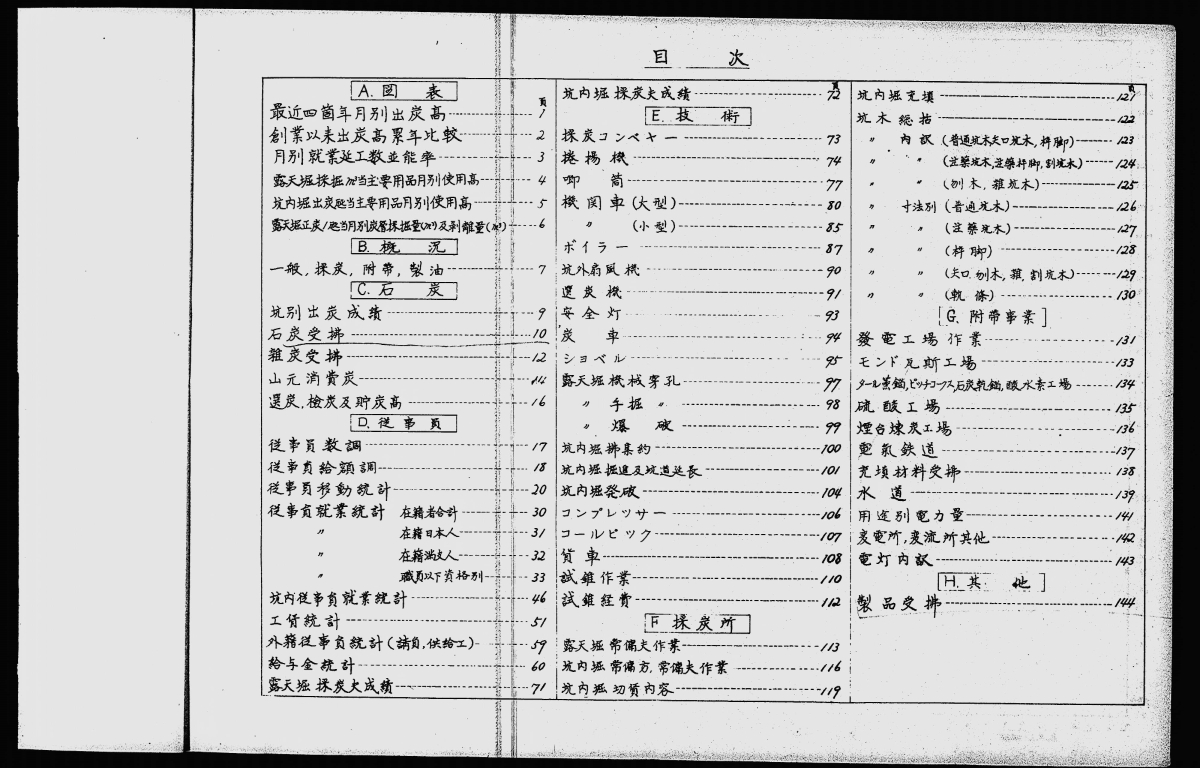 目次
A. 図表
頁
最近四箇年月別出炭高 1
創業以来出炭高累年比較 2
月別就業延工数並能率 3
露天堀採掘㎥当主要用品月別使用高 4
坑内堀出炭瓲当主要用品月別使用高 5
露天堀正炭1瓲当月別炭層採掘量(㎥)及剥離量(㎥) 6
B. 概況
一般, 採炭, 附帯, 製油 7
C. 石炭
坑別出炭成績 9
石炭受拂 10
雑炭受拂 12
山元消費炭 14
選炭, 検炭及貯炭高 16
D. 従事員
従事員数調 17
従事員給額調 18
従事員移動統計 20
従事員就業統計 在籍者合計 30
〃 在籍日本人 31
〃 在籍満支人 32
〃 職員以下資格別 33
坑内従事員就業統計 46
工賃統計 51
外籍従事員統計(請負, 供給工) 59
給与金統計 60
露天堀採炭夫成績 71
頁
坑内堀採炭夫成績 72
E. 技術
採炭コンベヤー 73
捲揚機 74
喞筒 77
機関車(大型) 80
〃 (小型) 85
ボイラー 87
坑外扇風機 90
選炭機 91
安全灯 93
炭車 94
ショベル 95
露天堀機械穿孔 97
〃 手掘 〃 98
〃 爆破 99
坑内堀拂集約 100
坑内堀掘進及坑道延長 101
坑内堀発破 104
コンプレッサー 106
コールピック 107
貨車 108
試錐作業 110
試錐経費 112
F 採炭所
露天堀常傭夫作業 113
坑内堀常傭方, 常傭夫作業 116
坑内堀切賃内容 119
頁
坑内堀充填 121
坑木総括 122
〃 内訳 (普通坑木矢口坑木, 枠脚) 123
〃 〃 (苙藥坑木, 苙藥枠脚, 割坑木) 124
〃 〃 (刎木, 雑坑木) 125
〃 寸法別 (普通坑木) 126
〃 〃 (苙藥坑木) 127
〃 〃 (枠脚) 128
〃 〃 (矢口, 刎木, 雑, 割坑木) 129
〃 〃 (軌條) 130
G. 附帯事業
發電工場作業 131
モンド瓦斯工場 133
タール蒸餾, ピッチコークス, 石炭乾餾, 酸水素工場 134
硫酸工場 135
煙台煉炭工場 136
電氣鉄道 137
充填材料受拂 138
水道 139
用途別電力量 141
変電所, 変流所其他 142
電灯内訳 143
H. 其他
製品受拂 144